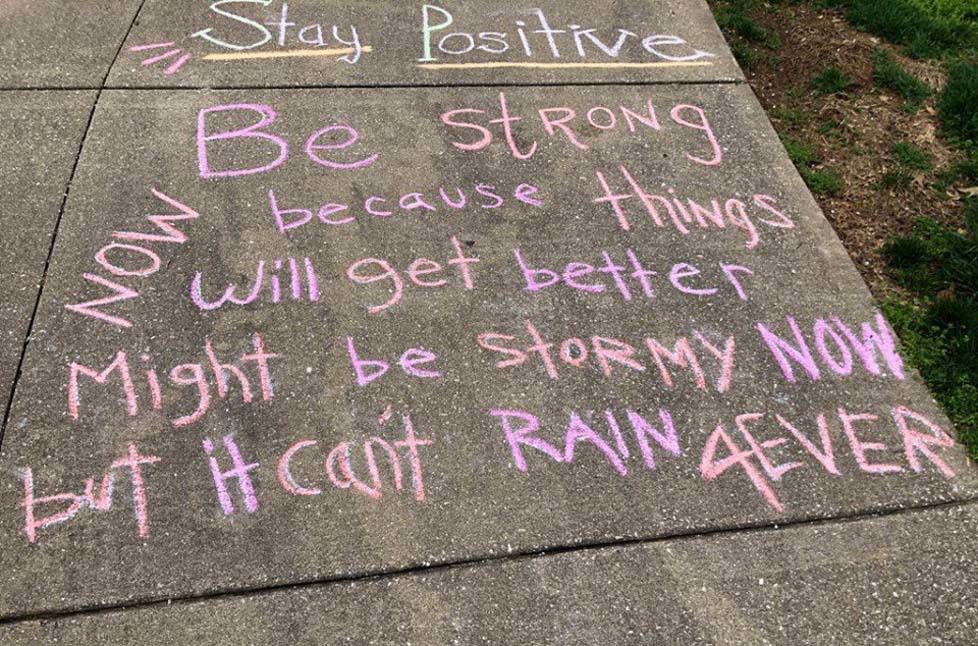 Stay Positive
Be STRONg
NOW because things
will get better
Might be STORMY NOW
but it can't RAIN 4EVER